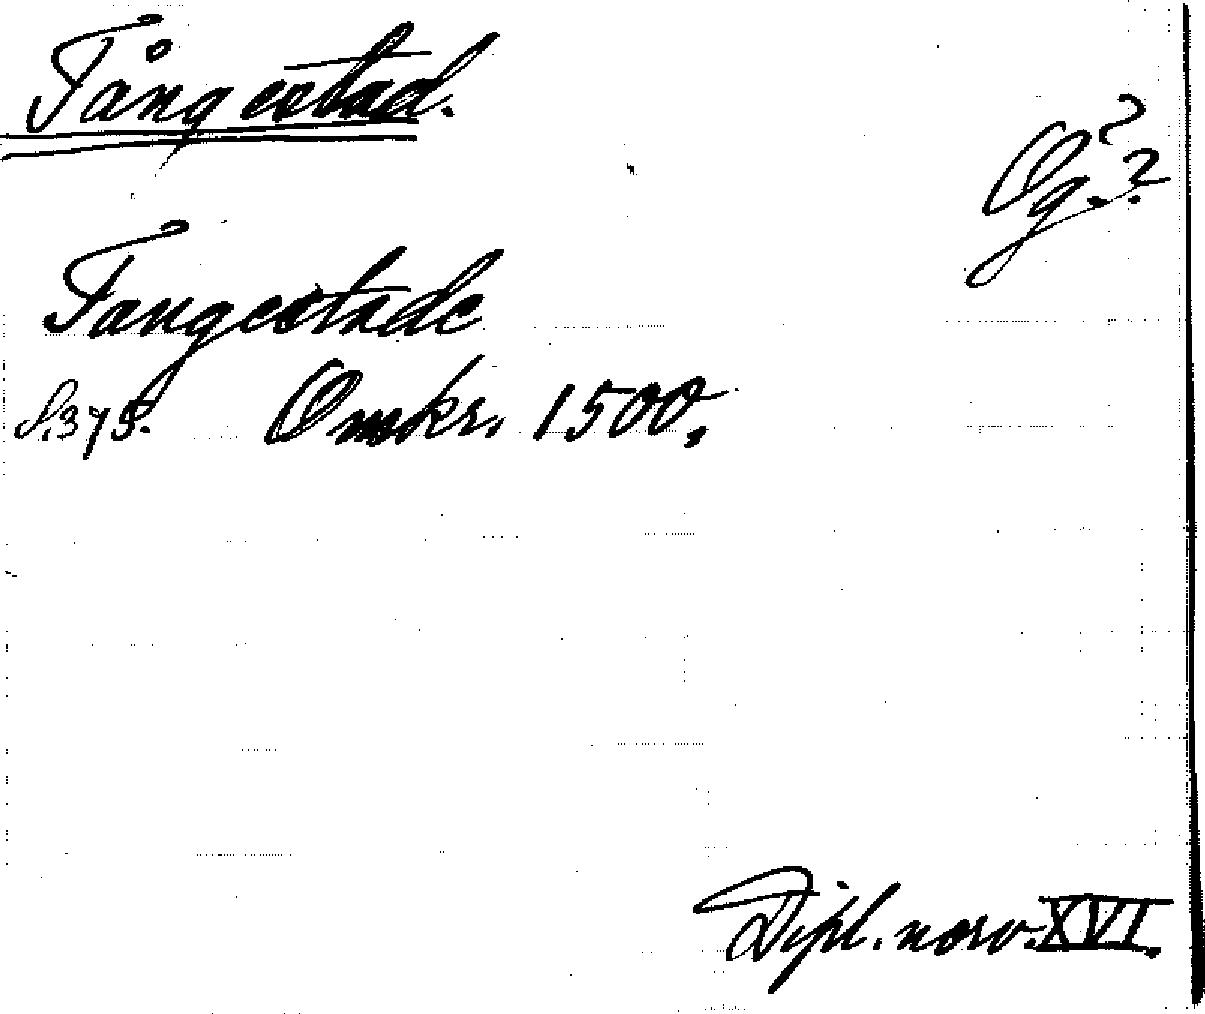 Tångestad.
Og.??
Tangestade
S. 375. Omkr. 1500.
Dipl. norv. XVI.